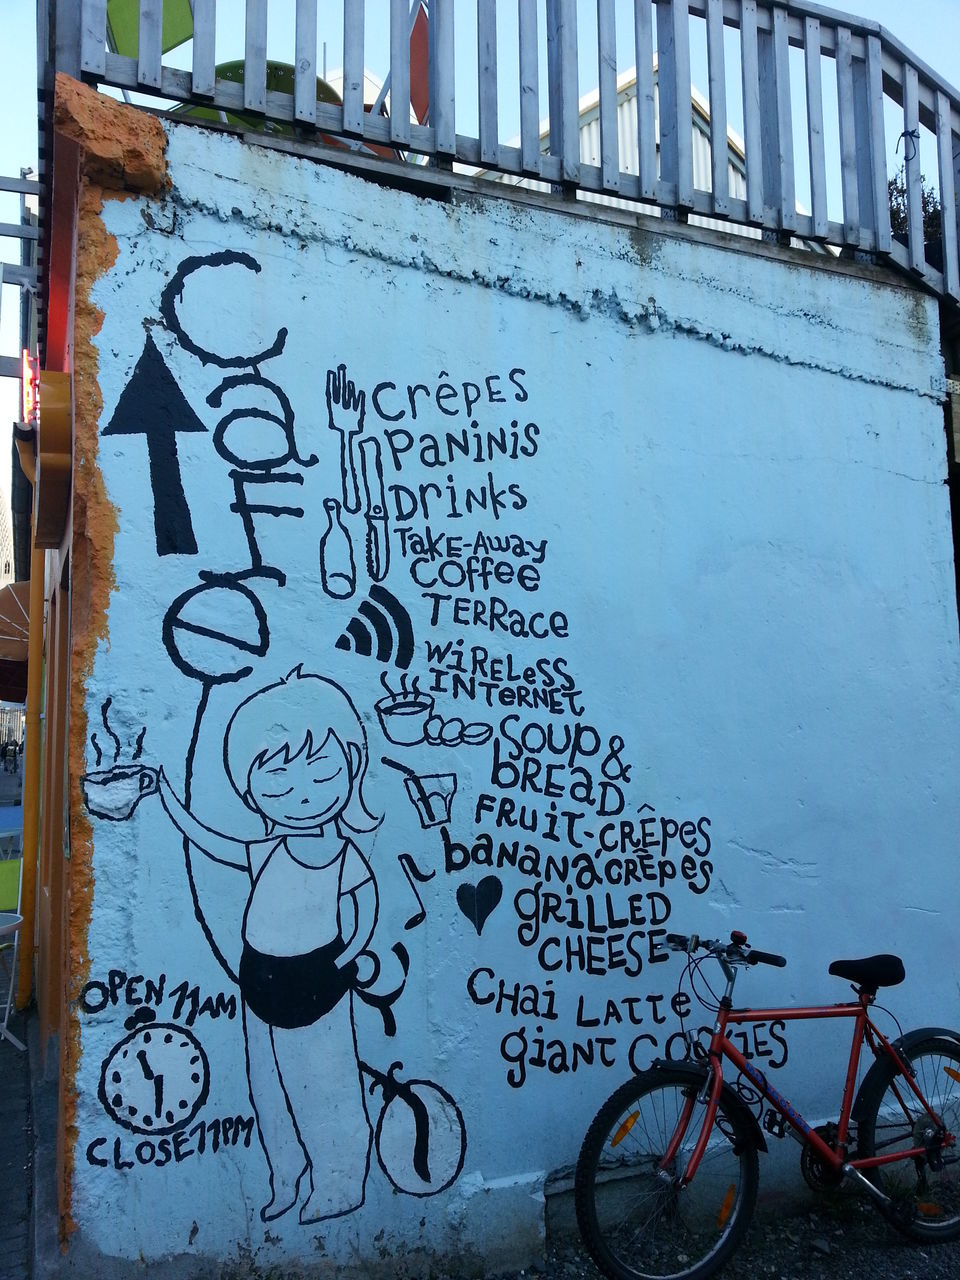 Café
Crêpes
Paninis
Drinks
Take-Away
Coffee
Terrace
Wireless
Internet
Soup &
Bread
Fruit-Crêpes
Banana Crêpes
Grilled
Cheese
Chai Latte
Giant Cookies
OPEN 11AM
CLOSE 11PM